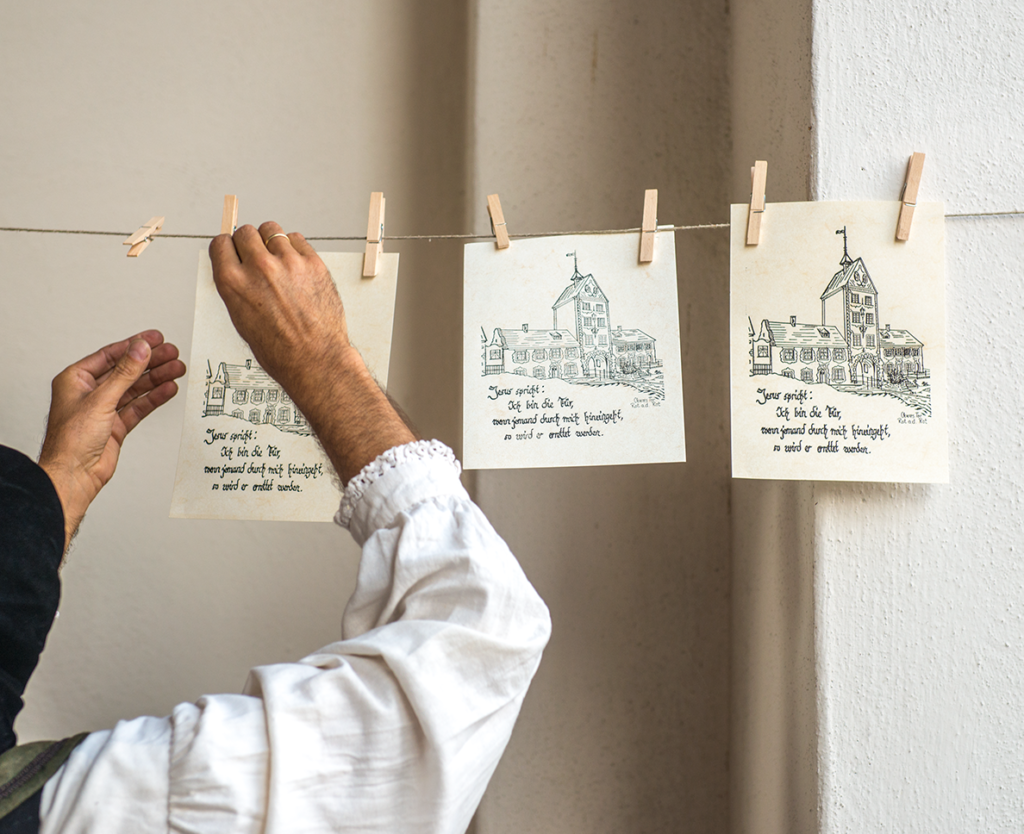 Jesus spricht:
Ich bin die Tür,
wenn jemand durch mich hineingeht,
so wird er errettet werden.
Jesus spricht:
Ich bin die Tür,
wenn jemand durch mich hineingeht,
so wird er errettet werden.
Oberes Tor
Rot a.d. Rot
Jesus spricht:
Ich bin die Tür,
wenn jemand durch mich hineingeht,
so wird er errettet werden.
Oberes Tor
Rot a.d. Rot